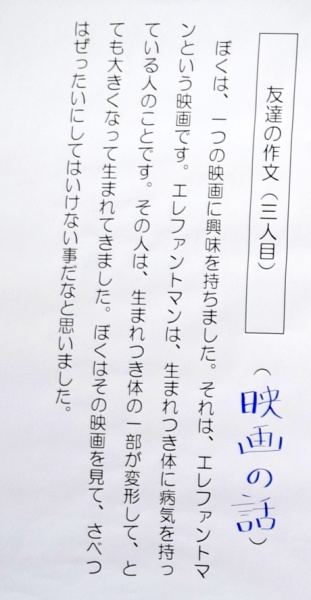 友達の作文(三人目)
(映画の話)
ぼくは、一つの映画に興味を持ちました。それは、エレファントマ
ンという映画です。エレファントマンは、生まれつき体に病気を持っ
ている人のことです。その人は、生まれつき体の一部が変形して、と
ても大きくなって生まれてきました。ぼくはその映画を見て、さべつ
はぜったいにしてはいけない事だなと思いました。